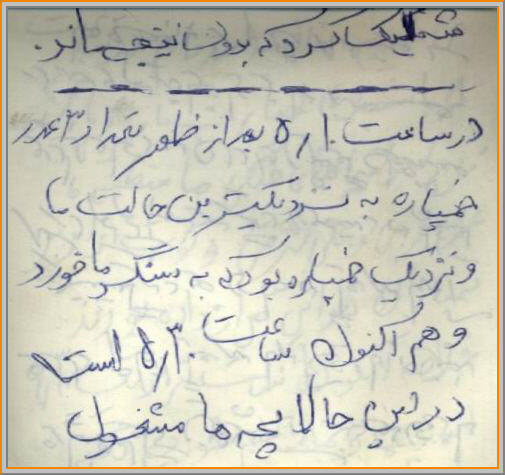 شلیک کرد که بدون نتیجه ماند.
در ساعت ۵/۱۰ بعد از ظهر تعداد ۳ عدد
خمپاره به نزدیکترین حالت ما
و نزدیک خمپاره بود که به سنگر ما خورد
و هم اکنون ساعت ۵/۳۰ است
در این حالا بچه ها مشغول